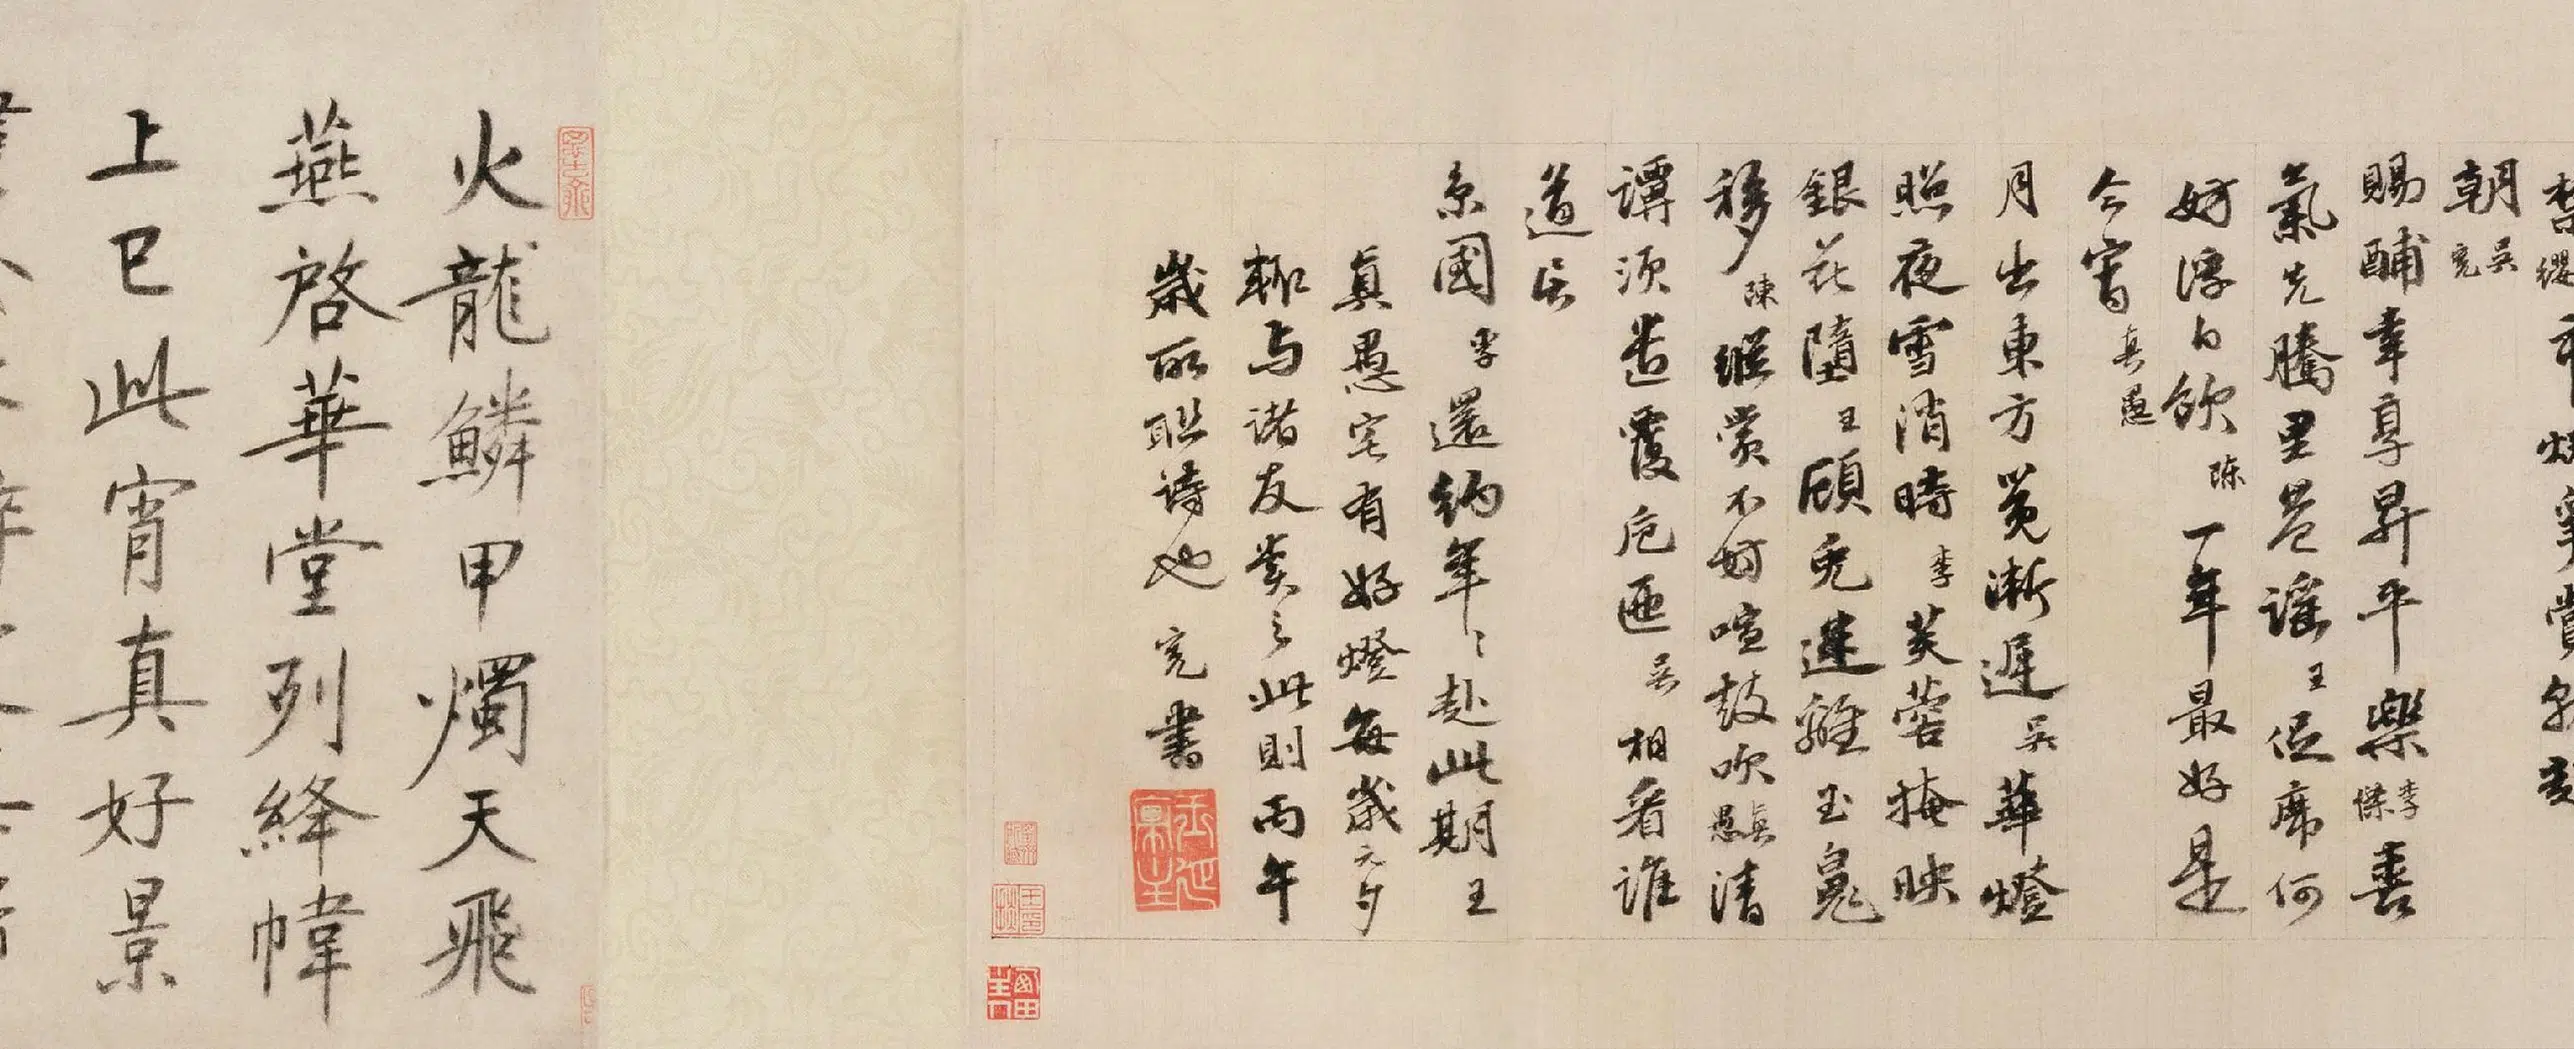 朝 吳寬
賜酺幸享昇平樂 李傑 喜
氣先騰里巷謠 王 促席何
妨浮白飲 陳 一年最好是
今宵 真愚
月出東方莫漸遲 吳 華燈
照夜雪消時 李 芙蓉掩映
銀花墮 王 顧兔連離玉毳
移 陳 縱賞不妨喧鼓吹 真愚 清
譚須盡覆卮匜 吳 相看誰
道長
京國 李 還約年年赴此期 王
真愚宅有好燈每歲元夕
輒与諸友賞之此則丙午
歲所聯詩也寬書
火龍鱗甲燭天飛
燕啓華堂列絳幃
上巳此宵真好景